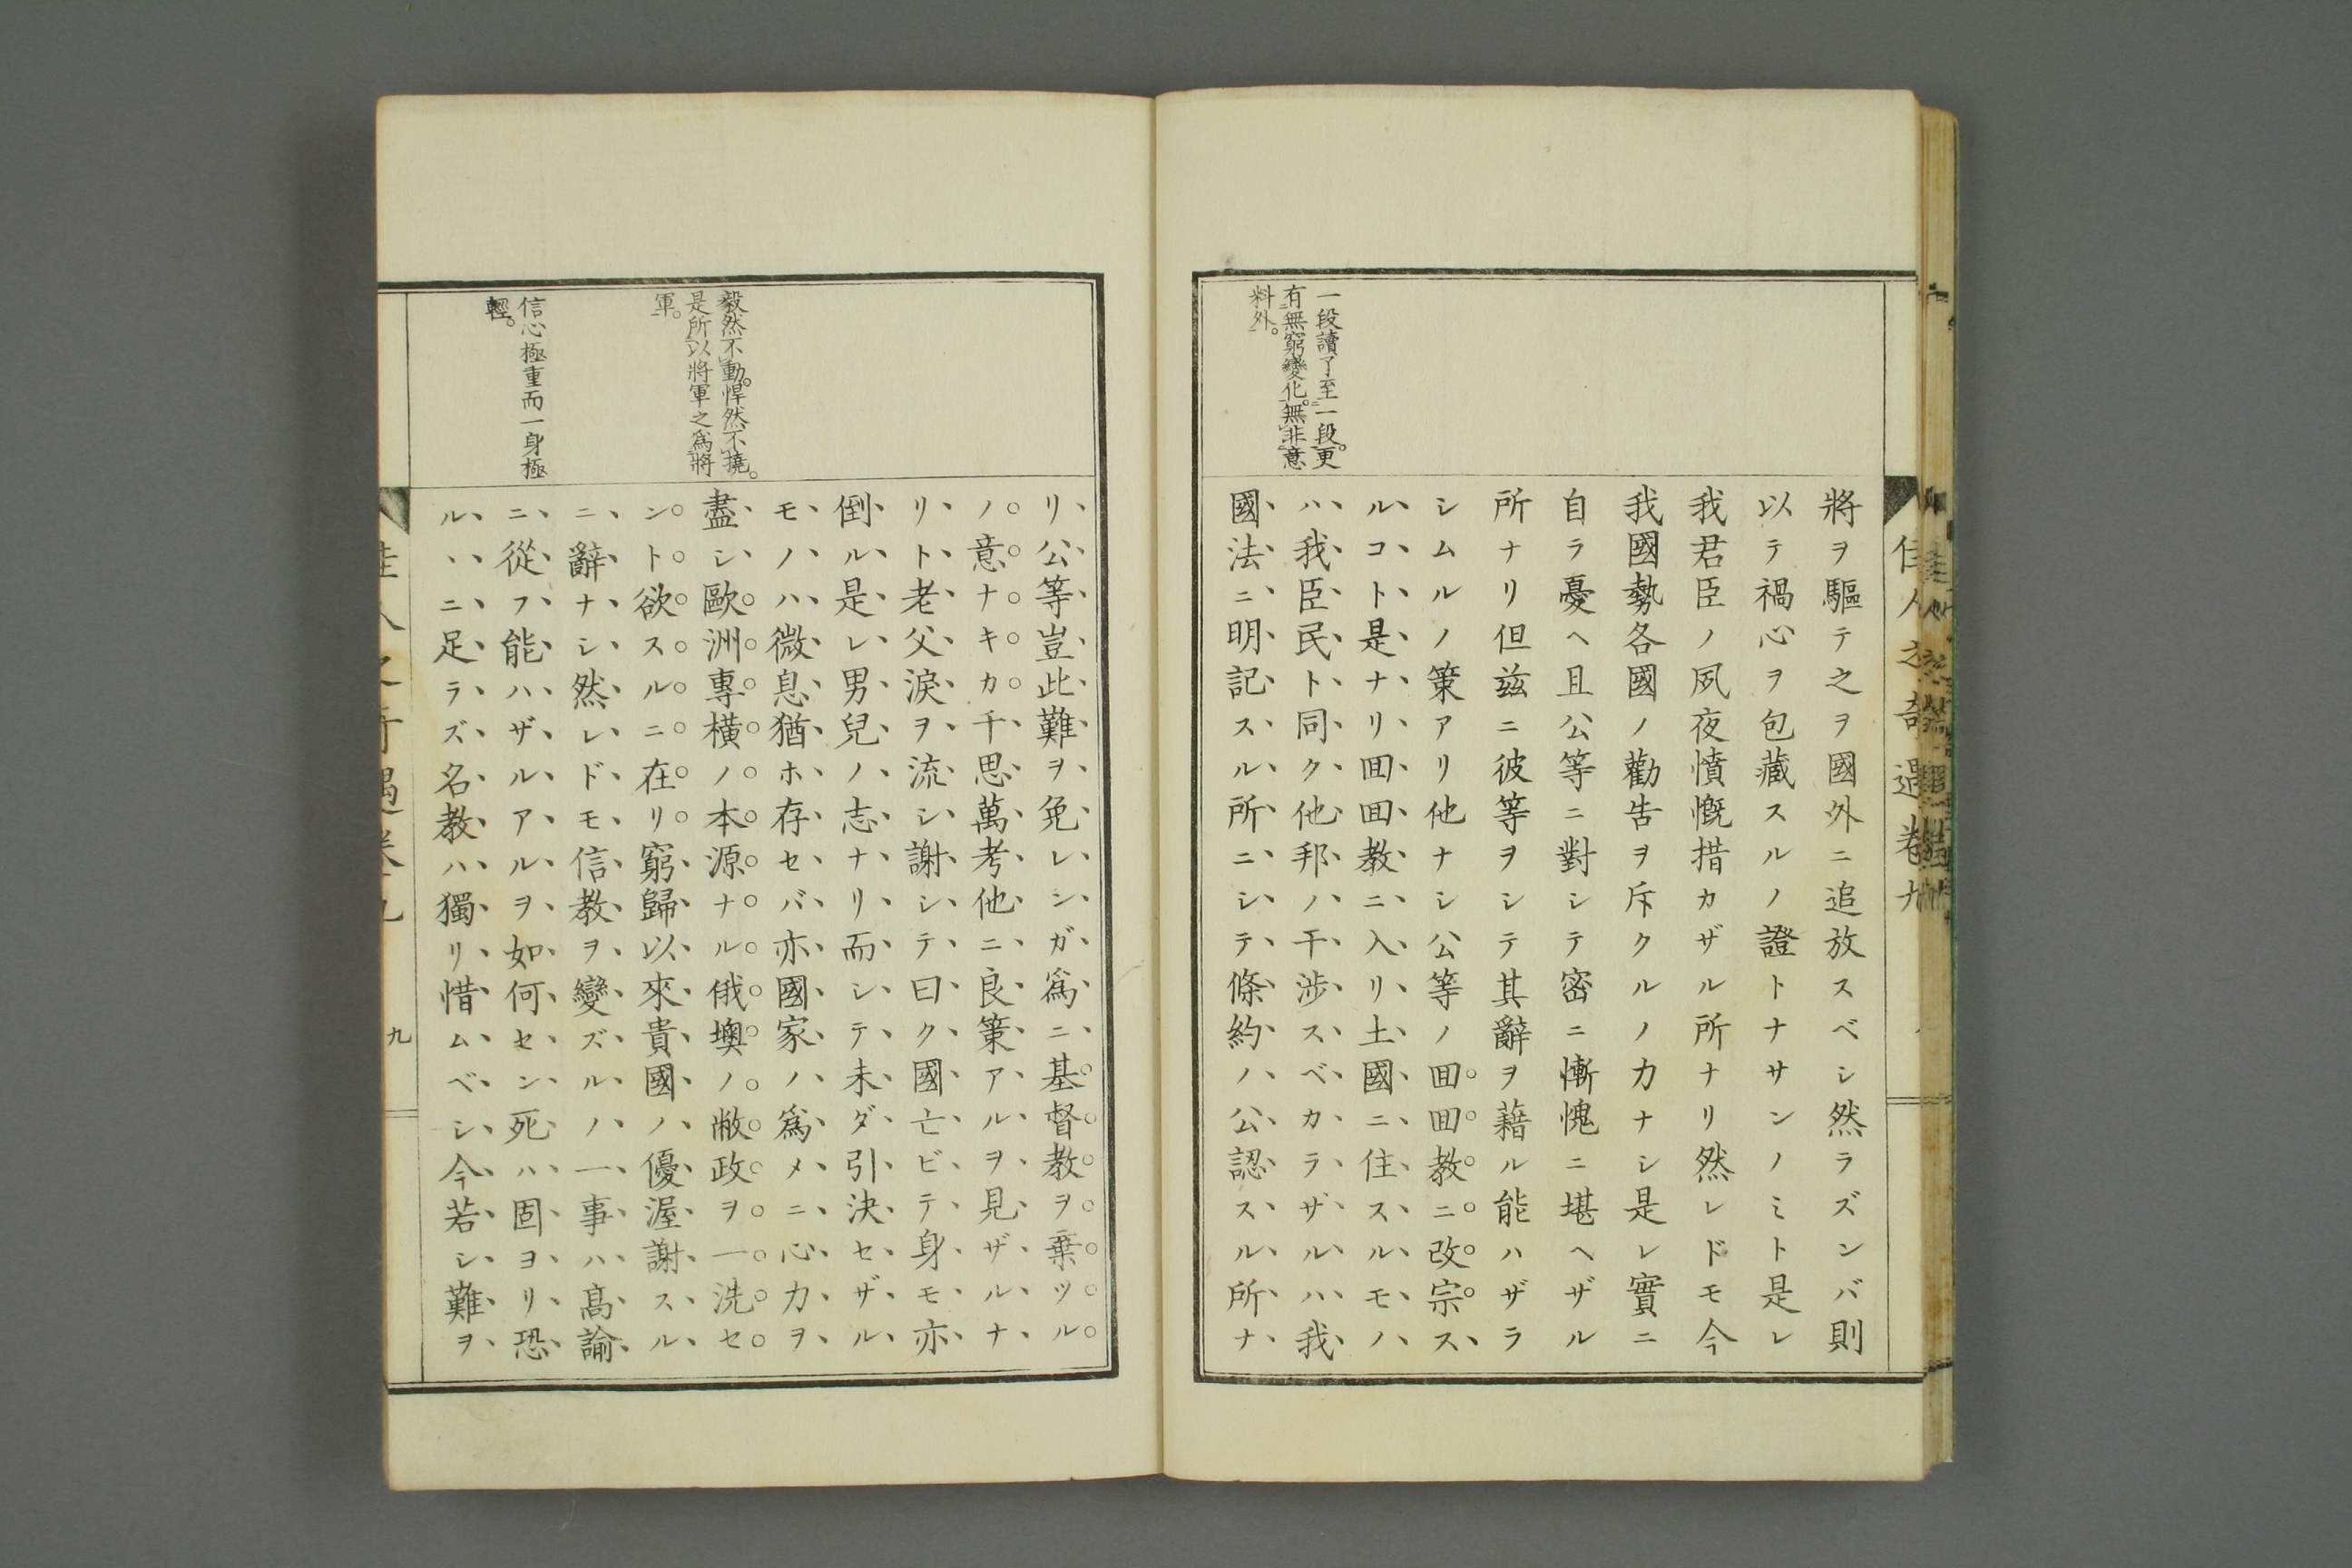 佳人之奇遇卷九
一段讀了至一段。更
有無窮變化。無非意
料外。
將ヲ驅テ之ヲ國外ニ追放スベシ然ラズンバ則
以テ禍心ヲ包藏スルノ證トナサンノミト是レ
我君臣ノ夙夜憤慨措カザル所ナリ然レドモ今
我國勢各國ノ勸告ヲ斥クルノ力ナシ是レ實ニ
自ラ憂ヘ且公等ニ對シテ密ニ慚愧ニ堪ヘザル
所ナリ但兹ニ彼等ヲシテ其辭ヲ藉ル能ハザラ
シムルノ策アリ他ナシ公等ノ囬囬教ニ改宗ス
ルコト是ナリ囬囬教ニ入リ土國ニ住スルモノ
ハ我臣民ト同ク他邦ノ干渉スベカラザルハ我
國法ニ明記スル所ニシテ條約ノ公認スル所ナ
毅然不動。悍然不撓。
是所以將軍之爲將
軍。
信心極重而一身極
輕。
リ公等豈此難ヲ免レンガ爲ニ基督教ヲ棄ツル
ノ意ナキカ千思萬考他ニ良策アルヲ見ザルナ
リト老父淚ヲ流シ謝シテ曰ク國亡ビテ身モ亦
倒ル是レ男兒ノ志ナリ而シテ未ダ引決セザル
モノハ微息猶ホ存セバ亦國家ノ爲メニ心力ヲ
盡シ歐洲專橫ノ本源ナル俄墺ノ敝政ヲ一洗セ
ント欲スルニ在リ窮歸以來貴國ノ優渥謝スル
ニ辭ナシ然レドモ信教ヲ變ズルノ一事ハ高諭
ニ從フ能ハザルアルヲ如何セン死ハ固ヨリ恐
ルヽニ足ラズ名教ハ獨リ惜ムベシ今若シ難ヲ
九